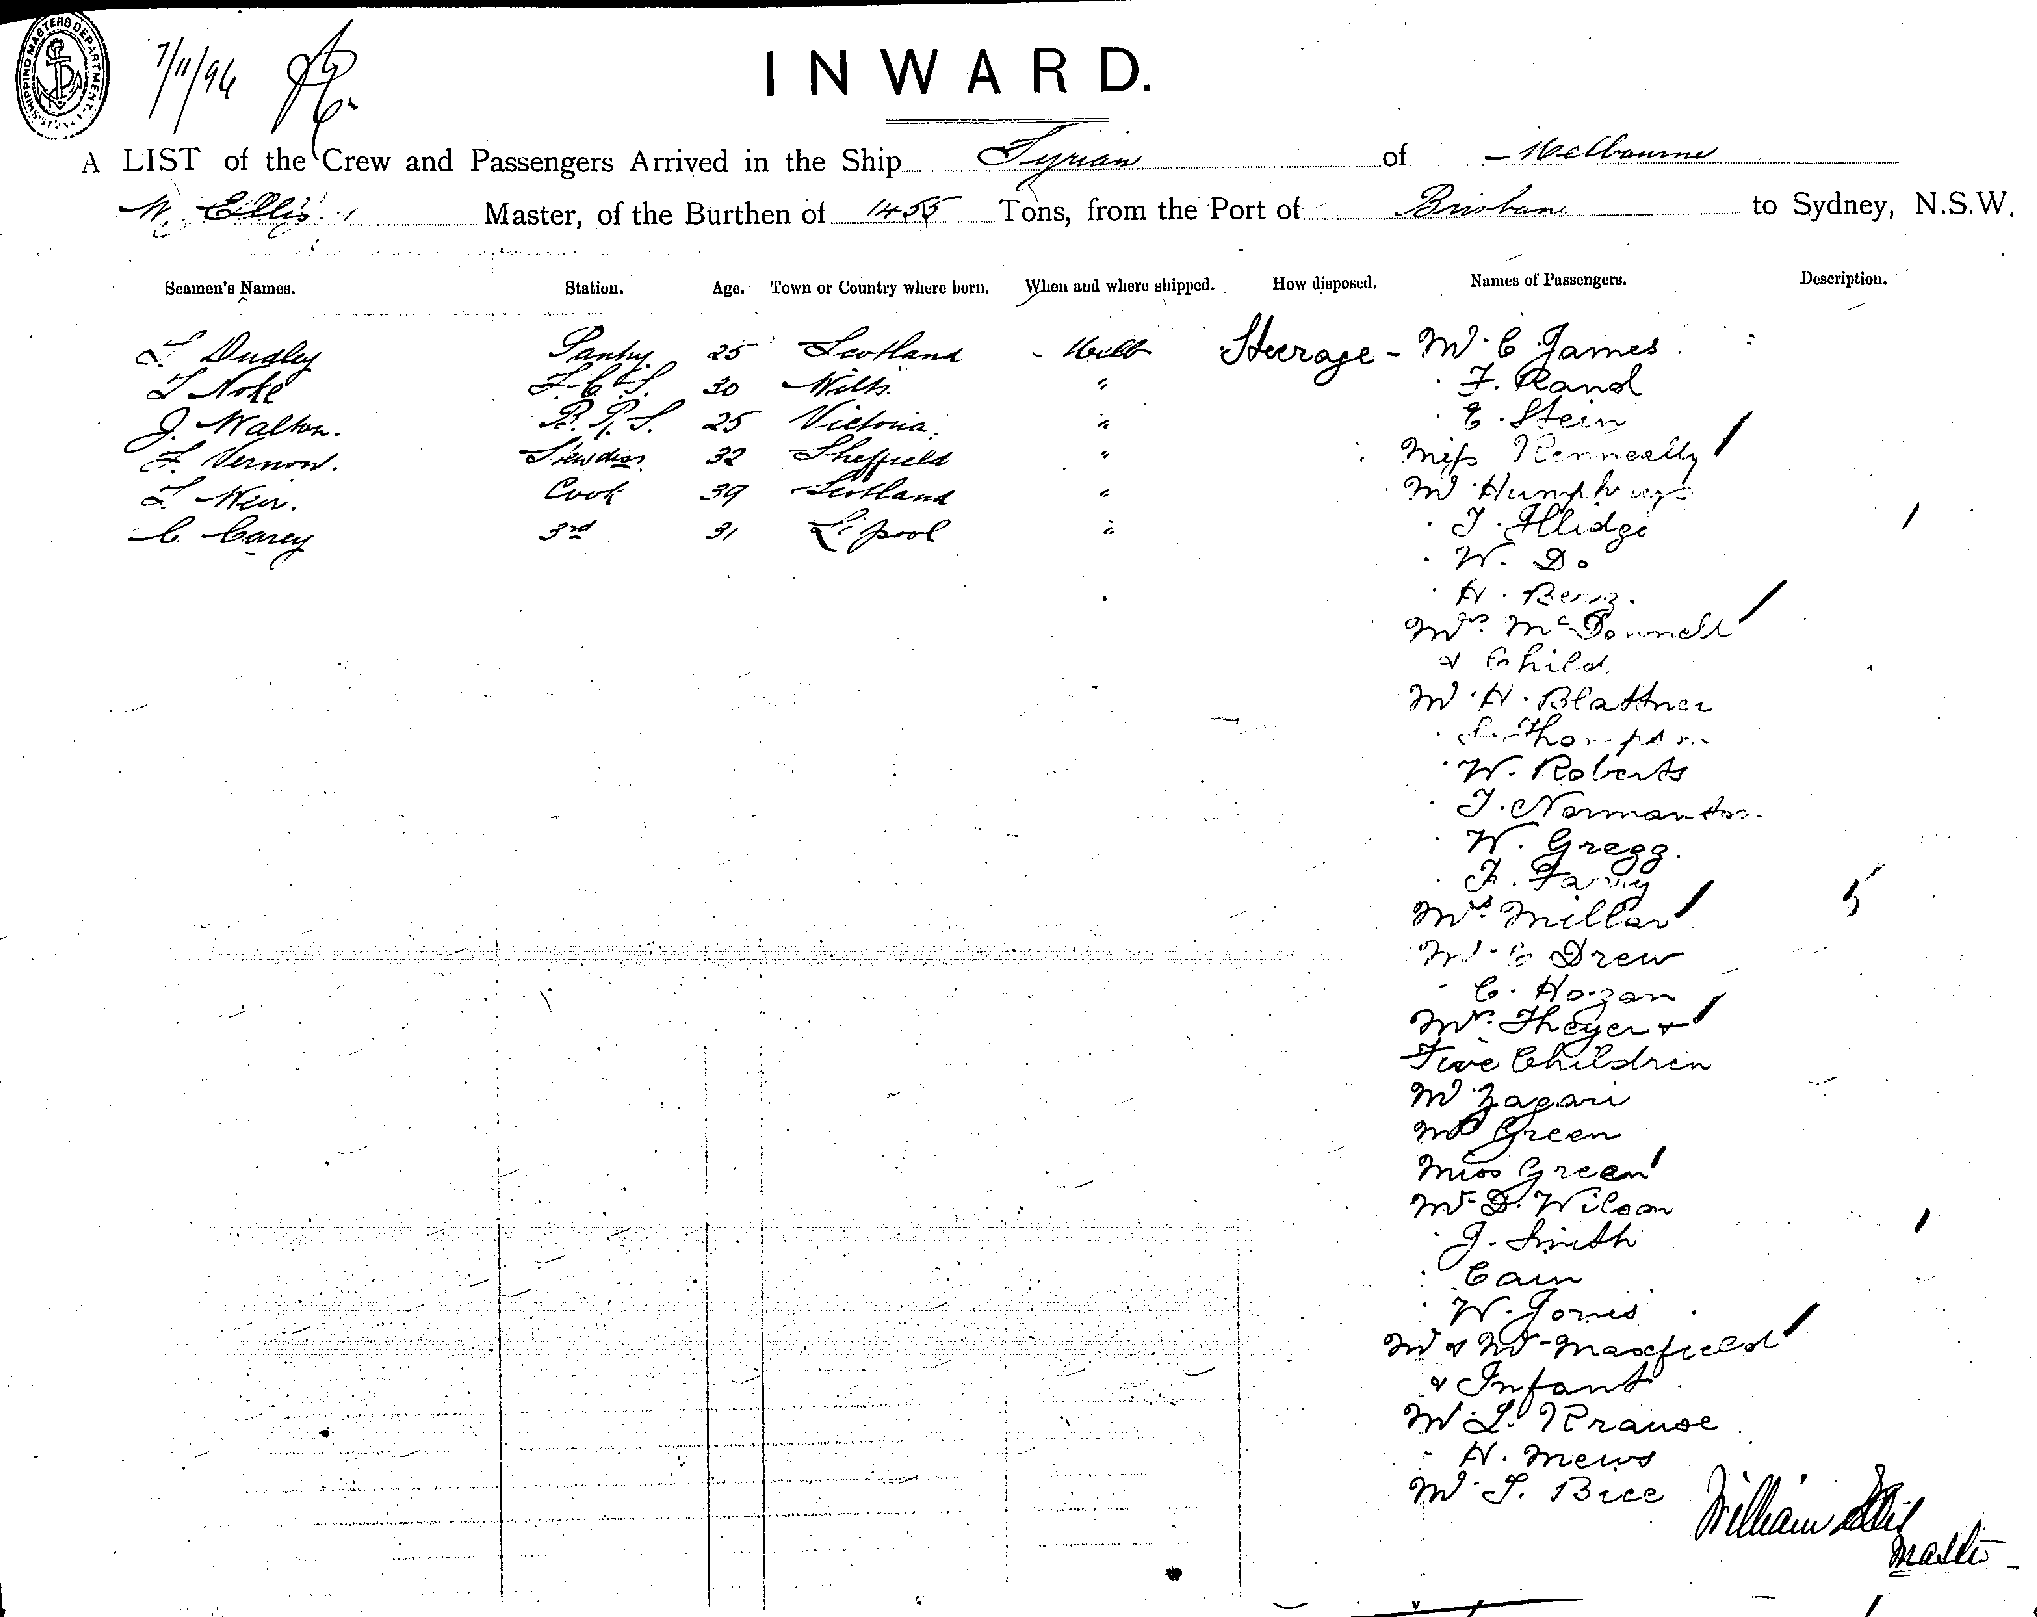 SHIPPING MASTERS DEPARTMENT
7/11/96
INWARD.
A LIST of the Crew and Passengers Arrived in the Ship Tyrian of Melbourne
W. Ellis, Master, of the Burthen of 1455 Tons, from the Port of Brisbane to Sydney, N.S.W.
Seamen's Names. Station. Age. Town or Country where born. When and where shipped. How disposed. Names of Passengers. Description.
Pantry 25 Scotland Melb Steerage - Mr. C James
T Noke F.C.S. 30 Wilts " " F. Rand
J. Walton. 25 Victoria. " " E. Stein
F. Vernon. Stewdess 32 Sheffield " Miss Kenneally
T. Weir. Cook 39 Scotland " Mr Humphreys
C. Carey 3rd 31 L'pool " " T. Allidge
" W. Do
" H. Benz.
Mrs. McDonnell
& Child.
Mr. H. Blattner
" S. Thompson
" W. Roberts
" T. Normanton.
" W. Gregg.
" F.
Mrs. Millar 5
Mr. C Drew
" C. Hogan
Mrs. Theyer &
Five Children
Mr Zagari
Mr Green
Miss Green
Mr D. Wilson
" J. Smith
" Cain
" W. Jones
Mr & Mrs Maxfield
& Infant
Mr L. Krause
" H. Mews
Mr. T. Bice
William Ellis
Master